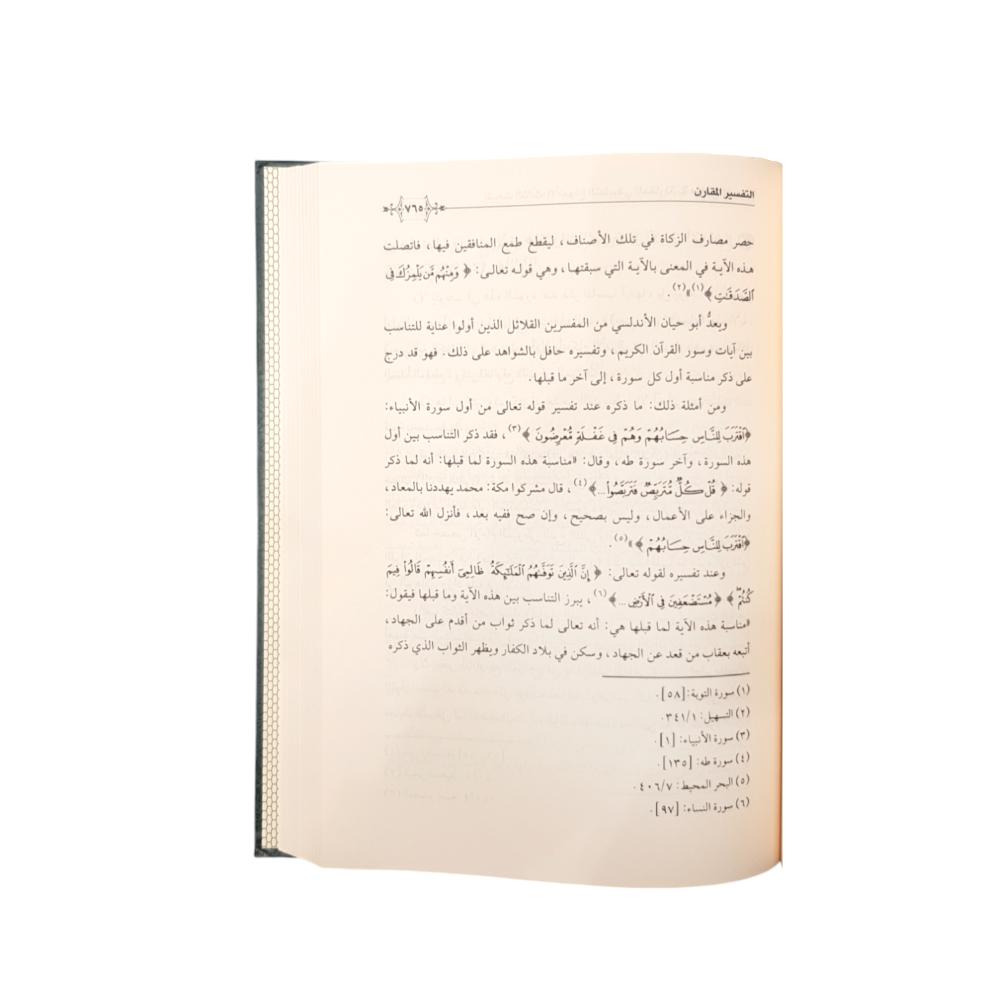 التفسير المقارن
٧٦٥
حصر مصارف الزكاة في تلك الأصناف، ليقطع طمع المنافقين فيها، فاتصلت
هذه الآية في المعنى بالآية التي سبقتها، وهي قوله تعالى: ﴿ وَمِنْهُم مَّن يَلْمِزُكَ فِي
الصَّدَقَاتِ ﴾(١)»(٢).
ويعدُّ أبو حيان الأندلسي من المفسرين القلائل الذين أولوا عناية للتناسب
بين آيات وسور القرآن الكريم، وتفسيره حافل بالشواهد على ذلك. فهو قد درج
على ذكر مناسبة أول كل سورة، إلى آخر ما قبلها.
ومن أمثلة ذلك: ما ذكره عند تفسير قوله تعالى من أول سورة الأنبياء:
﴿اقْتَرَبَ لِلنَّاسِ حِسَابُهُمْ وَهُمْ فِي غَفْلَةٍ مُّعْرِضُونَ ﴾(٣)، فقد ذكر التناسب بين أول
هذه السورة، وآخر سورة طه، وقال: «مناسبة هذه السورة لما قبلها: أنه لما ذكر
قوله: ﴿ قُلْ كُلٌّ مُّتَرَبِّصٌ فَتَرَبَّصُوا...﴾(٤)، قال مشركوا مكة: محمد يهددنا بالمعاد،
والجزاء على الأعمال، وليس بصحيح، وإن صح ففيه بعد، فأنزل الله تعالى:
﴿اقْتَرَبَ لِلنَّاسِ حِسَابُهُمْ ﴾»(٥).
وعند تفسيره لقوله تعالى: ﴿ إِنَّ الَّذِينَ تَوَفَّاهُمُ الْمَلَائِكَةُ ظَالِمِي أَنفُسِهِمْ قَالُوا فِيمَ
كُنتُمْ ﴾ ﴿ مُسْتَضْعَفِينَ فِي الْأَرْضِ ...﴾(٦)، يبرز التناسب بين هذه الآية وما قبلها فيقول:
«مناسبة هذه الآية لما قبلها هي: أنه تعالى لما ذكر ثواب من أقدم على الجهاد،
أتبعه بعقاب من قعد عن الجهاد، وسكن في بلاد الكفار ويظهر الثواب الذي ذكره
(١) سورة التوبة: [٥٨].
(٢) التسهيل: ٣٤١/١.
(٣) سورة الأنبياء: [١].
(٤) سورة طه: [١٣٥].
(٥) البحر المحيط: ٤٠٦/٧.
(٦) سورة النساء: [٩٧].